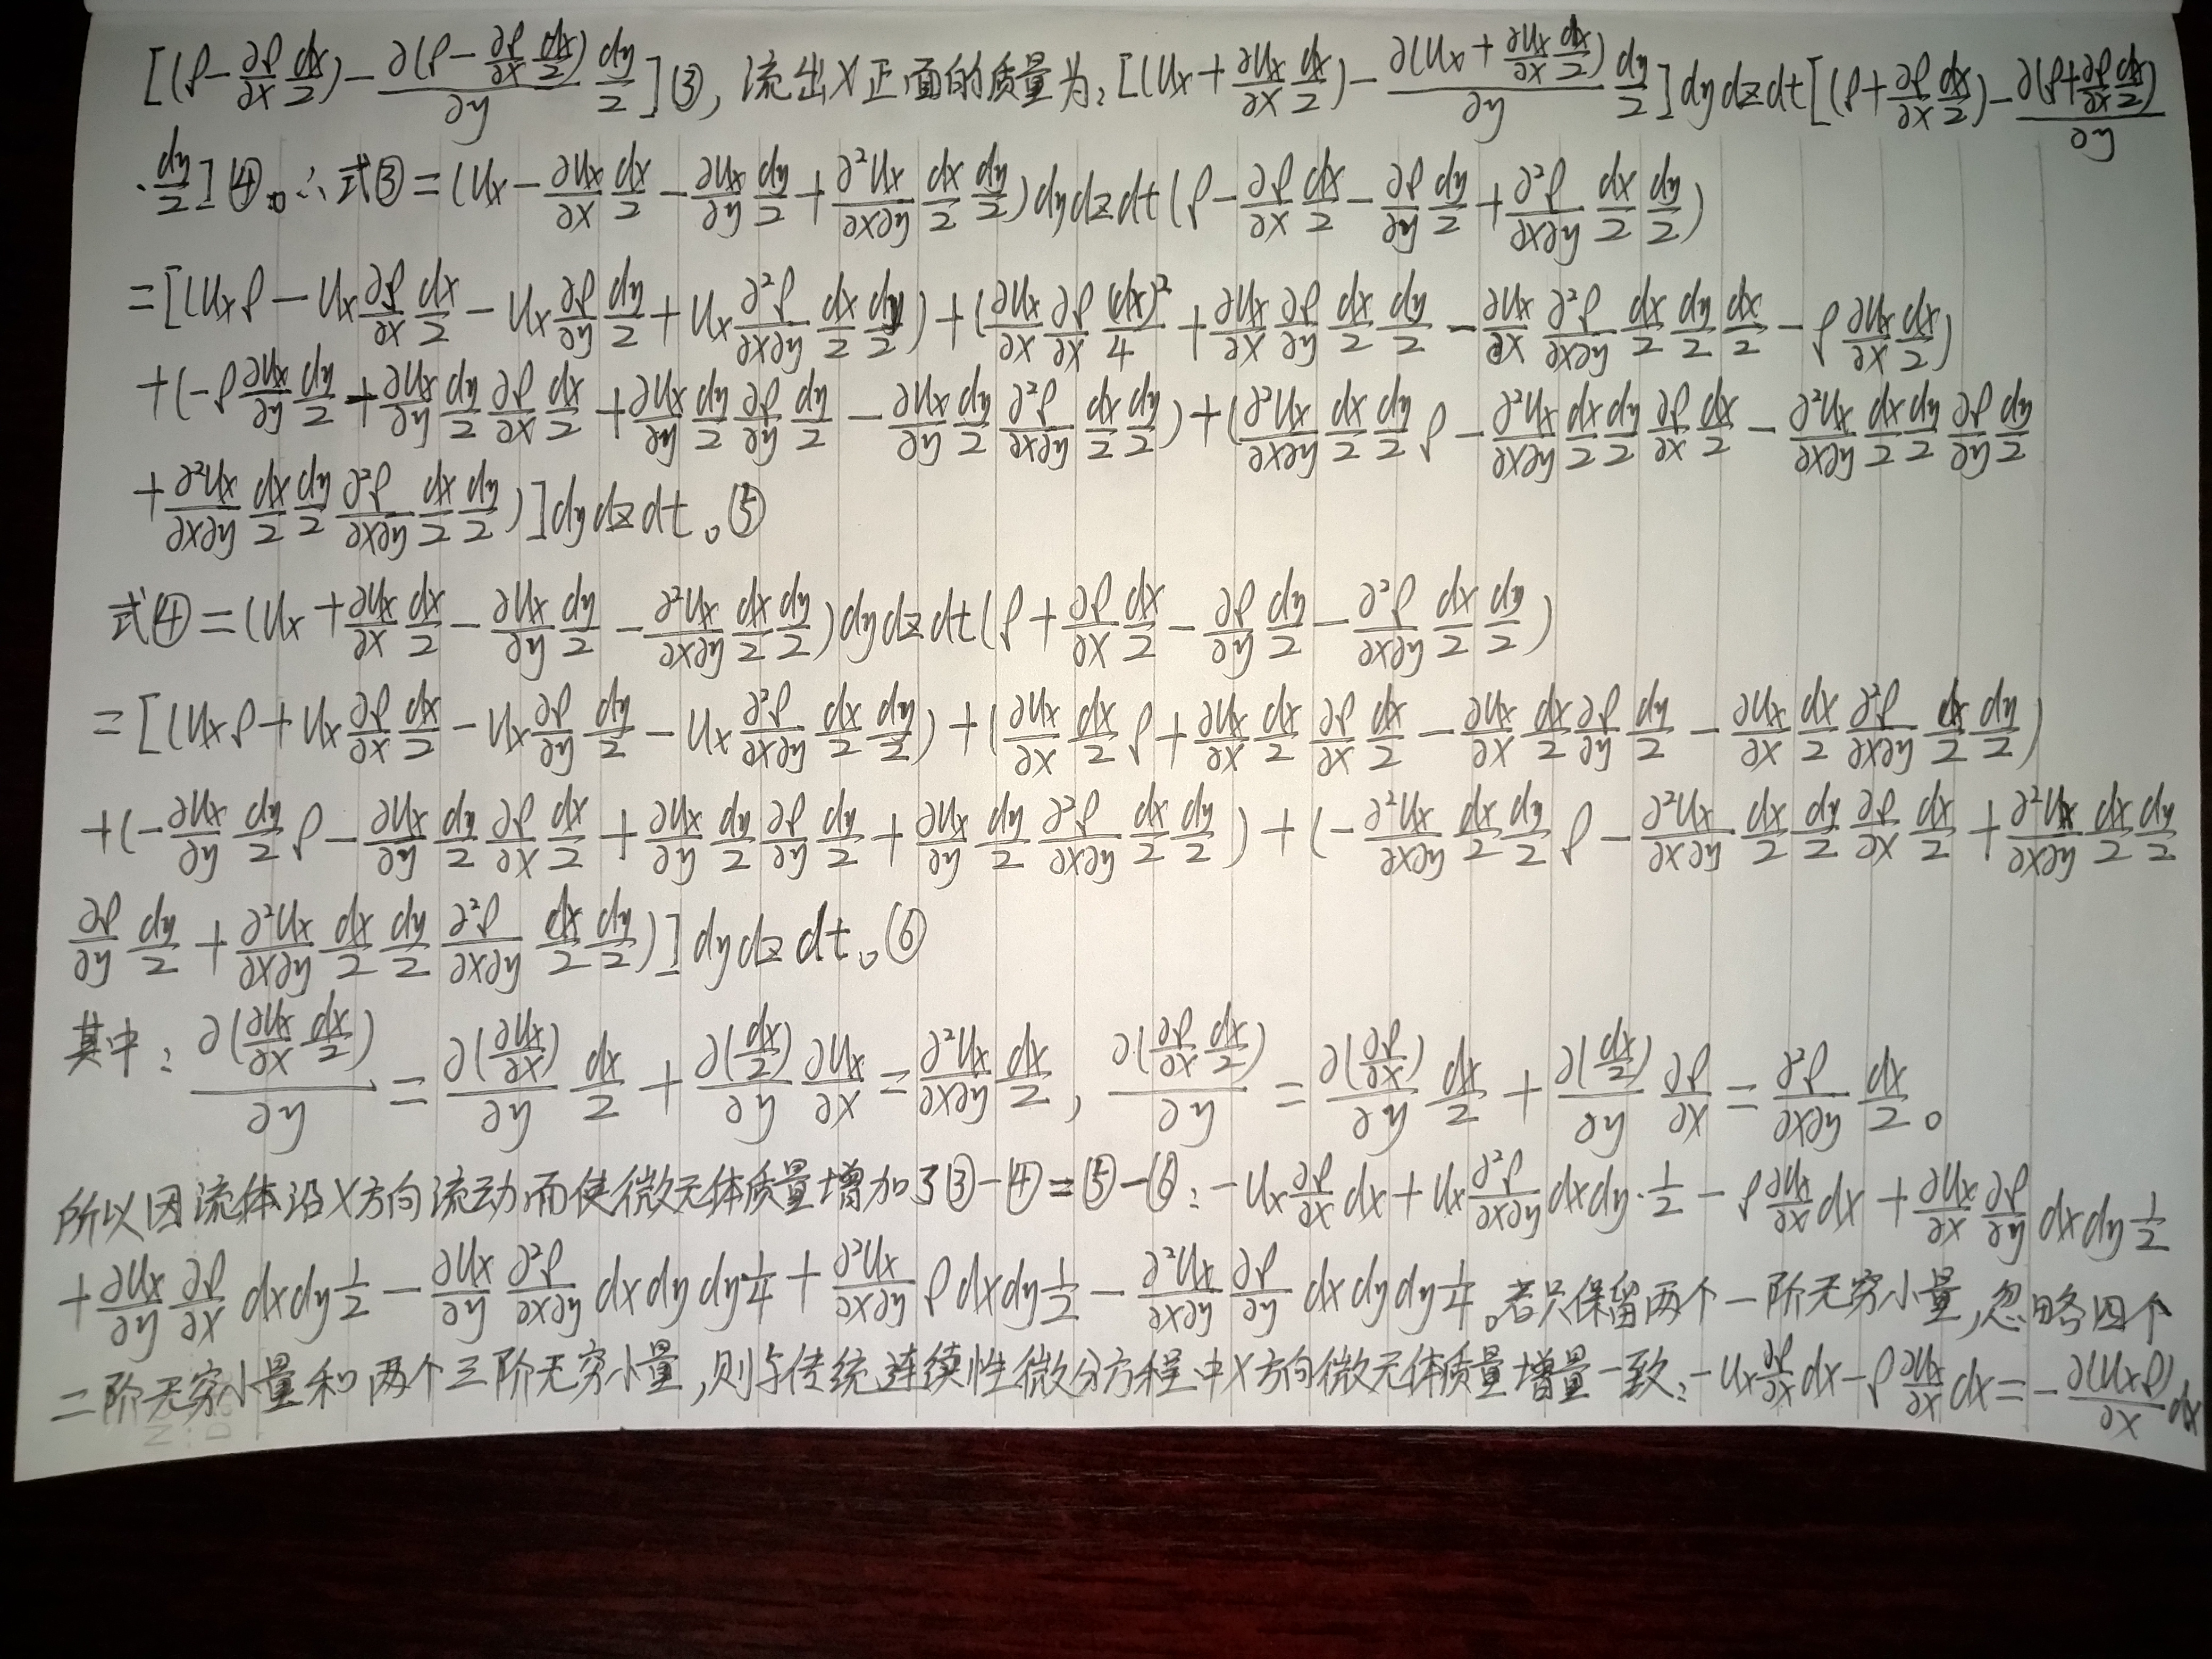 [(ρ-∂ρ/∂x dx/2)-∂(ρ-∂ρ/∂x dx/2)/∂y dy/2]③,流出X正面的质量为:[(Ux+∂Ux/∂x dx/2)-∂(Ux+∂Ux/∂x dx/2)/∂y dy/2]dydzdt[(ρ+∂ρ/∂x dx/2)-∂(ρ+∂ρ/∂x dx/2)/∂y
·dy/2]④。∴式③=(Ux-∂Ux/∂x dx/2-∂Ux/∂y dy/2+∂²Ux/∂x∂y dx/2 dy/2)dydzdt(ρ-∂ρ/∂x dx/2-∂ρ/∂y dy/2+∂²ρ/∂x∂y dx/2 dy/2)
=[(Uxρ-Ux ∂ρ/∂x dx/2-Ux ∂ρ/∂y dy/2+Ux ∂²ρ/∂x∂y dx/2 dy/2)+(∂Ux/∂x ∂ρ/∂x (dx)²/4+∂Ux/∂x ∂ρ/∂y dx/2 dy/2-∂Ux/∂x ∂²ρ/∂x∂y dx/2 dy/2 dx/2-ρ ∂Ux/∂x dx/2)
+(-ρ ∂Ux/∂y dy/2+∂Ux/∂y dy/2 ∂ρ/∂x dx/2+∂Ux/∂y dy/2 ∂ρ/∂y dy/2-∂Ux/∂y dy/2 ∂²ρ/∂x∂y dx/2 dy/2)+(∂²Ux/∂x∂y dx/2 dy/2 ρ-∂²Ux/∂x∂y dx/2 dy/2 ∂ρ/∂x dx/2-∂²Ux/∂x∂y dx/2 dy/2 ∂ρ/∂y dy/2
+∂²Ux/∂x∂y dx/2 dy/2 ∂²ρ/∂x∂y dx/2 dy/2)]dydzdt。⑤
式④=(Ux+∂Ux/∂x dx/2-∂Ux/∂y dy/2-∂²Ux/∂x∂y dx/2 dy/2)dydzdt(ρ+∂ρ/∂x dx/2-∂ρ/∂y dy/2-∂²ρ/∂x∂y dx/2 dy/2)
=[(Uxρ+Ux ∂ρ/∂x dx/2-Ux ∂ρ/∂y dy/2-Ux ∂²ρ/∂x∂y dx/2 dy/2)+(∂Ux/∂x dx/2 ρ+∂Ux/∂x dx/2 ∂ρ/∂x dx/2-∂Ux/∂x dx/2 ∂ρ/∂y dy/2-∂Ux/∂x dx/2 ∂²ρ/∂x∂y dx/2 dy/2)
+(-∂Ux/∂y dy/2 ρ-∂Ux/∂y dy/2 ∂ρ/∂x dx/2+∂Ux/∂y dy/2 ∂ρ/∂y dy/2+∂Ux/∂y dy/2 ∂²ρ/∂x∂y dx/2 dy/2)+(-∂²Ux/∂x∂y dx/2 dy/2 ρ-∂²Ux/∂x∂y dx/2 dy/2 ∂ρ/∂x dx/2+∂²Ux/∂x∂y dx/2 dy/2
∂ρ/∂y dy/2+∂²Ux/∂x∂y dx/2 dy/2 ∂²ρ/∂x∂y dx/2 dy/2)]dydzdt。⑥
其中:∂(∂Ux/∂x dx/2)/∂y=∂(∂Ux/∂x)/∂y dx/2+∂(dx/2)/∂y ∂Ux/∂x=∂²Ux/∂x∂y dx/2,∂(∂ρ/∂x dx/2)/∂y=∂(∂ρ/∂x)/∂y dx/2+∂(dx/2)/∂y ∂ρ/∂x=∂²ρ/∂x∂y dx/2。
所以因流体沿X方向流动而使微元体质量增加了③-④=⑤-⑥:-Ux ∂ρ/∂x dx+Ux ∂²ρ/∂x∂y dxdy·1/2-ρ ∂Ux/∂x dx+∂Ux/∂x ∂ρ/∂y dxdy 1/2
+∂Ux/∂y ∂ρ/∂x dxdy 1/2-∂Ux/∂y ∂²ρ/∂x∂y dxdydy 1/4+∂²Ux/∂x∂y ρdxdy 1/2-∂²Ux/∂x∂y ∂ρ/∂y dxdydy 1/4。若只保留两个一阶无穷小量,忽略四个
二阶无穷小量和两个三阶无穷小量,则与传统连续性微分方程中X方向微元体质量增量一致:-Ux ∂ρ/∂x dx-ρ ∂Ux/∂x dx=-∂(Uxρ)/∂x dx